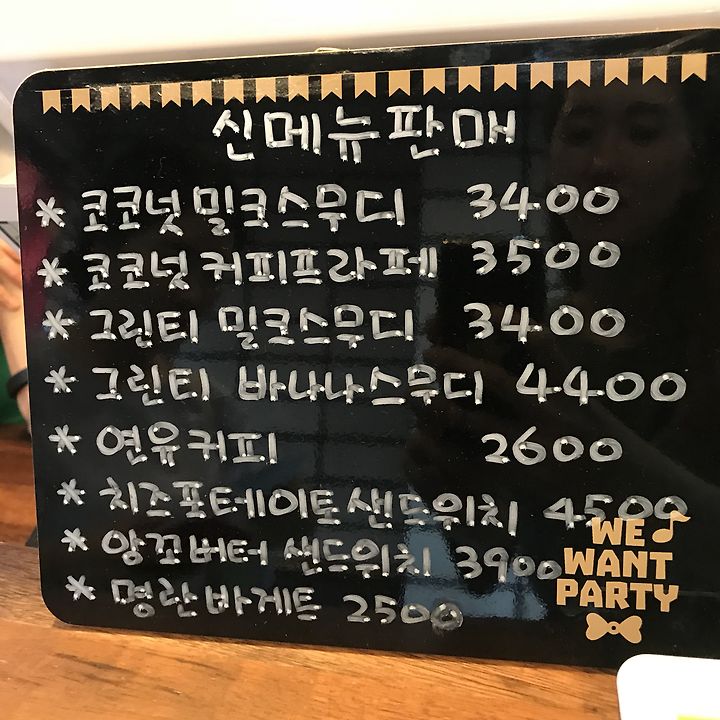 신메뉴판매
* 코코넛밀크스무디 3400
* 코코넛커피프라페 3500
* 그린티 밀크스무디 3400
* 그린티 바나나스무디 4400
* 연유커피 2600
* 치즈포테이토샌드위치 4500
* 앙꼬버터 샌드위치 3900
* 명란바게트 2500
WE
WANT
PARTY